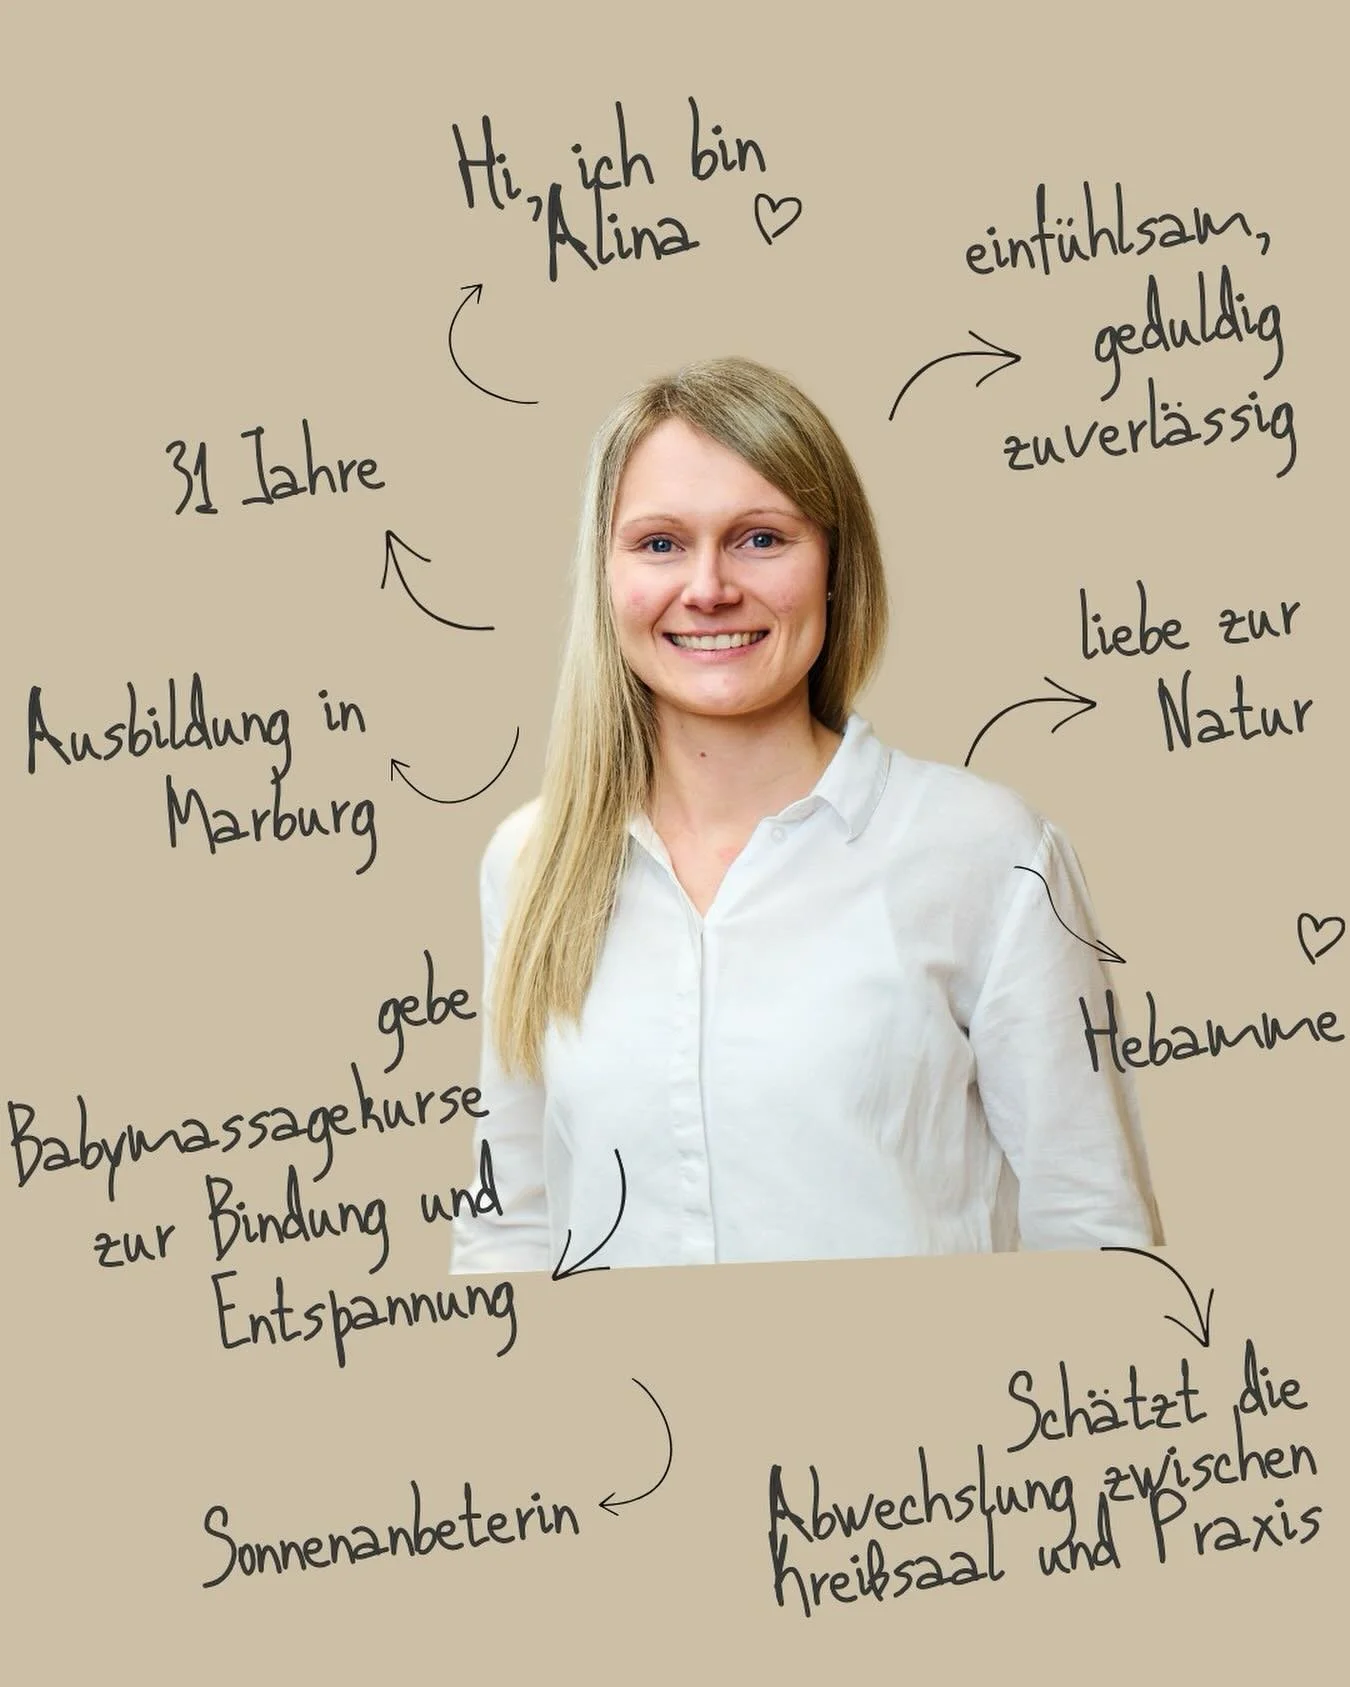 Hi, ich bin
Alina ♡
einfühlsam,
geduldig
zuverlässig
31 Jahre
liebe zur
Natur
Ausbildung in
Marburg
Hebamme ♡
gebe
Babymassagekurse
zur Bindung und
Entspannung
Schätzt die
Abwechslung zwischen
Kreißsaal und Praxis
Sonnenanbeterin